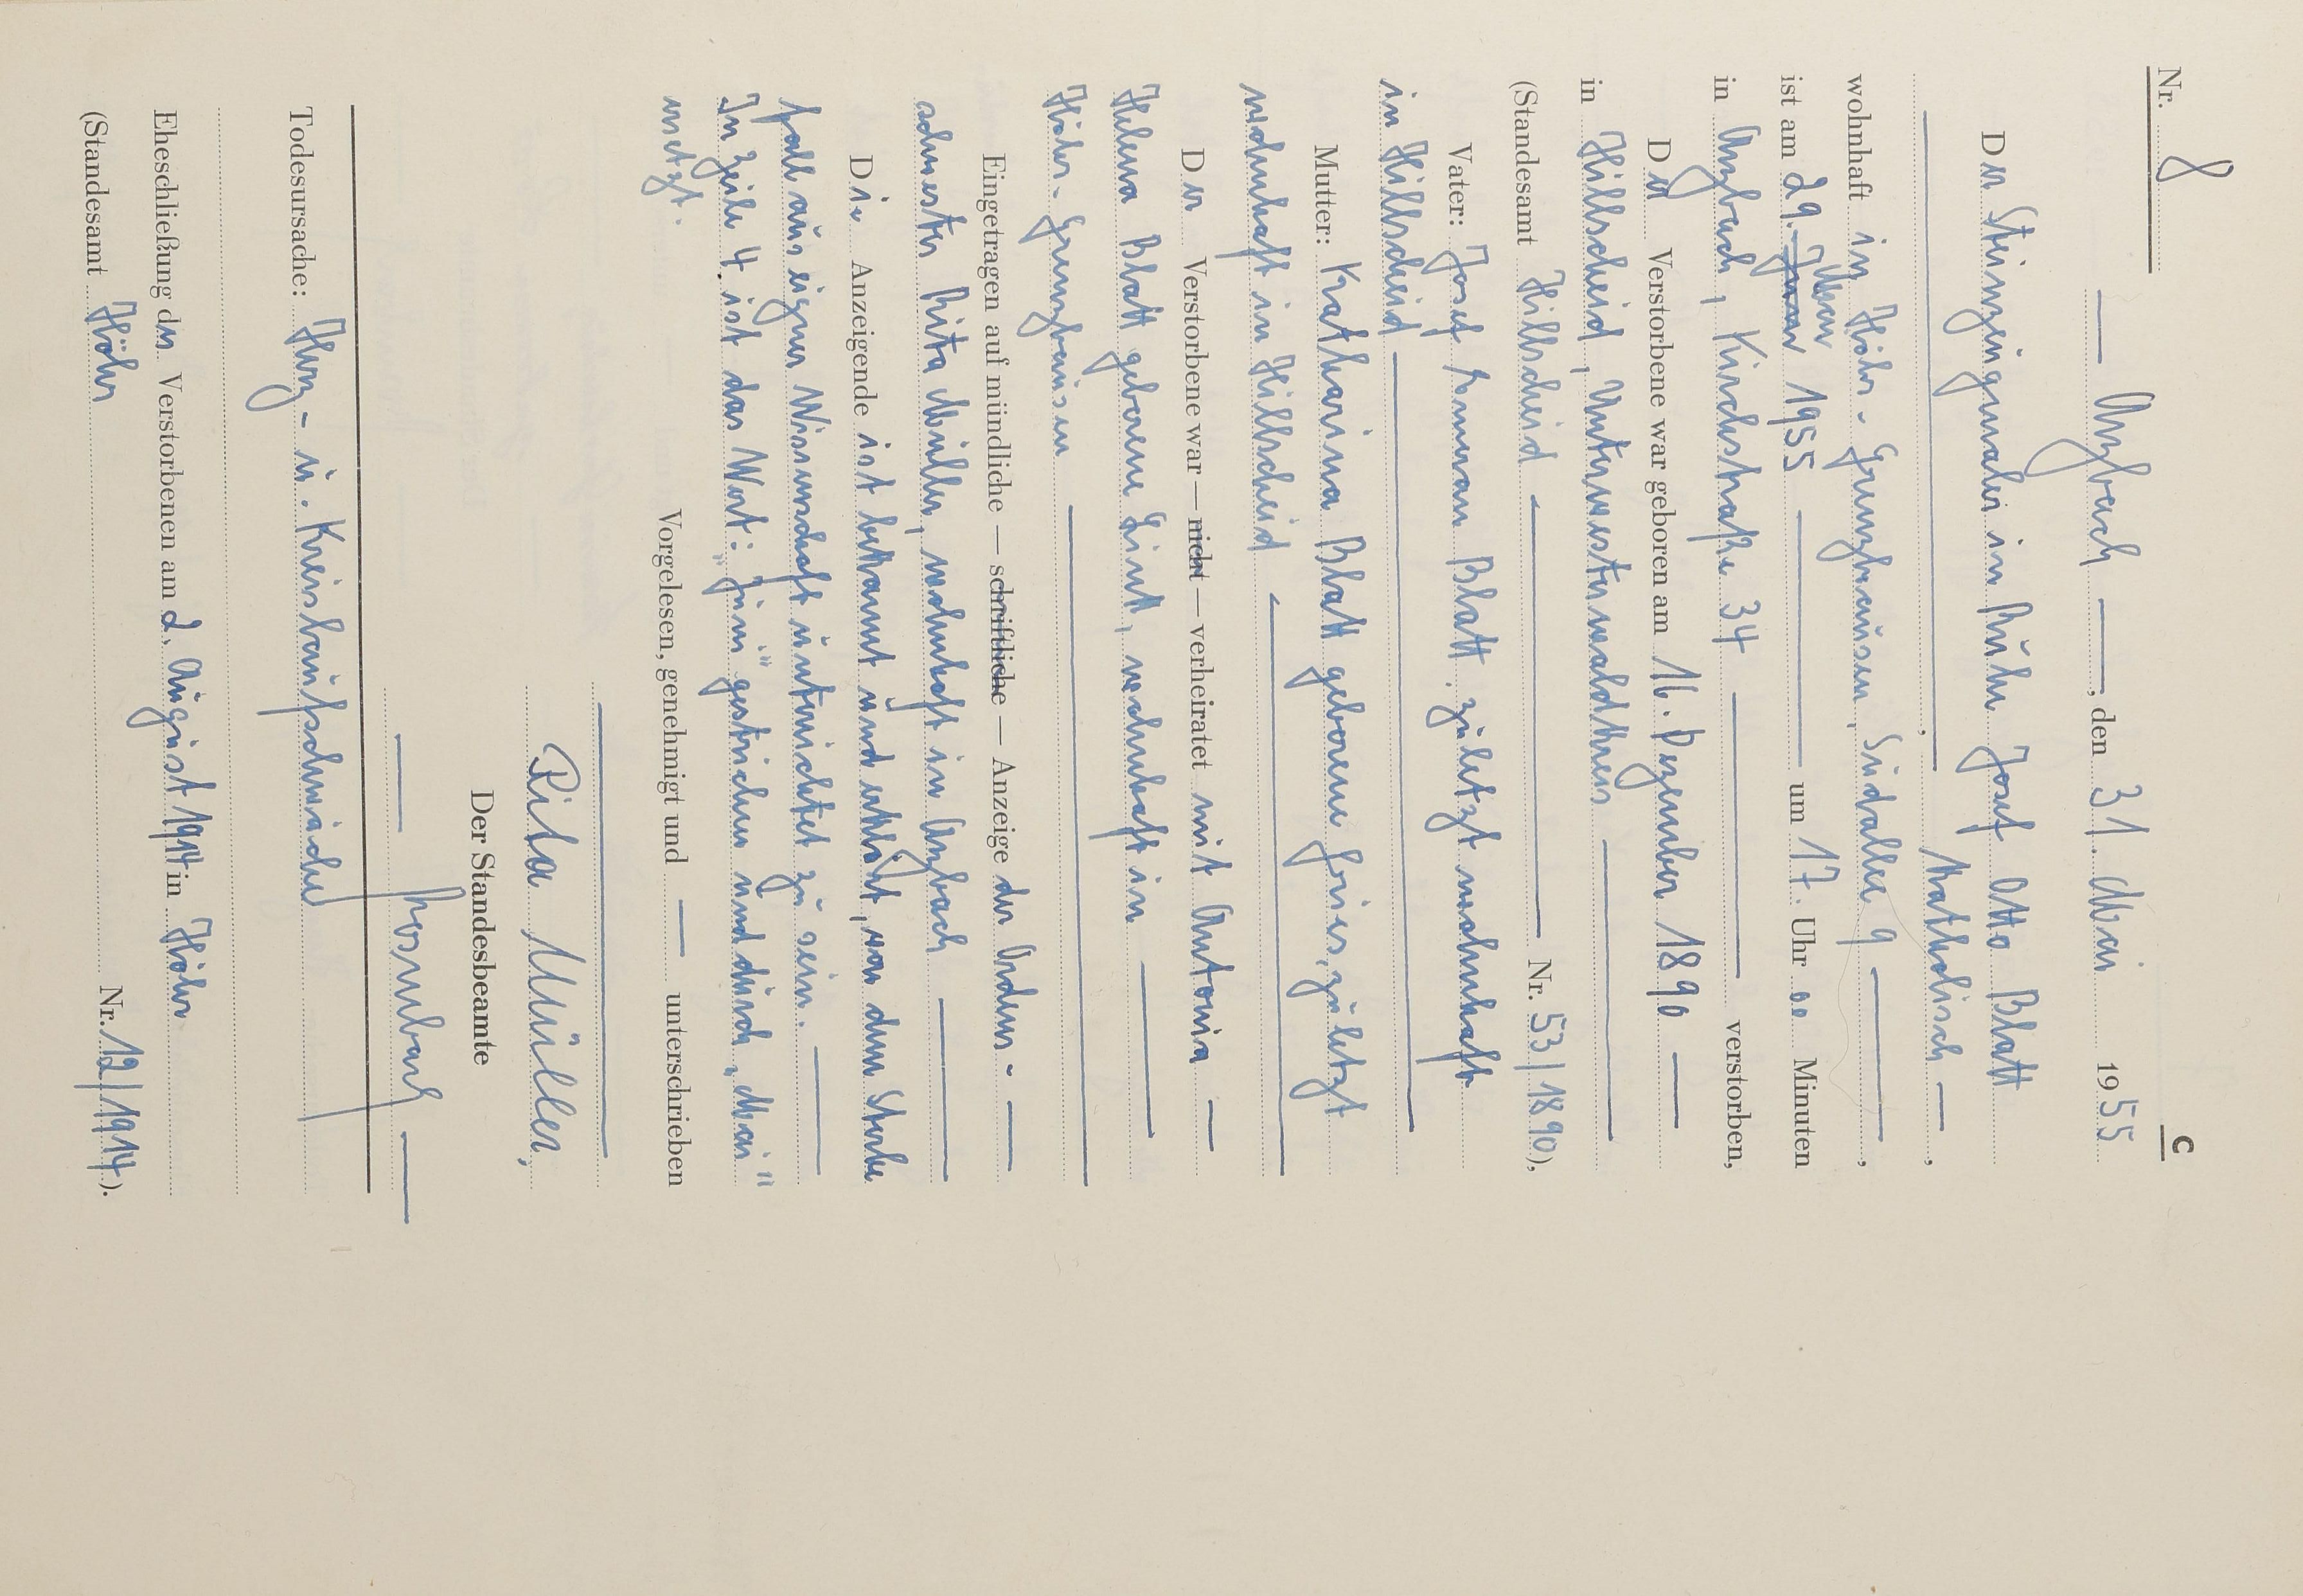 Nr. 8
C
— Arzbach —, den 31. Mai 1955
Der Steinzeugmaler in Ruhe Josef Otto Blatt
—, katholisch —,
wohnhaft in Höhr-Grenzhausen, Südallee 9 —,
Mai
ist am 29. Juni 1955 — um 17 Uhr 00 Minuten
in Arzbach, Kirchstraße 34 — verstorben,
Der Verstorbene war geboren am 16. Dezember 1890 —
in Hillscheid, Unterwesterwaldkreis —
(Standesamt Hillscheid — Nr. 53/1890),
Vater: Josef Blatt, zuletzt wohnhaft
in Hillscheid —
Mutter: Katharina Blatt geborene Fries, zuletzt
wohnhaft in Hillscheid —
Der Verstorbene war — nicht — verheiratet mit Antonia —
Helena Blatt geborene, wohnhaft in —
Höhr-Grenzhausen —
Eingetragen auf mündliche — schriftliche — Anzeige der Ordens- —
schwester Rita Müller, wohnhaft in Arzbach —
Die Anzeigende ist bekannt und erklärt, von dem Sterbe
fall aus eigner Wissenschaft unterrichtet zu sein. —
In Zeile 4 ist das Wort: "Juni" gestrichen und durch "Mai"
ersetzt.
Vorgelesen, genehmigt und — unterschrieben
Rita Müller,
Der Standesbeamte
—
Todesursache: Herz- u. Kreislaufschwäche
Eheschließung des Verstorbenen am 2. August 1914 in Höhr
(Standesamt Höhr Nr. 12/1914).